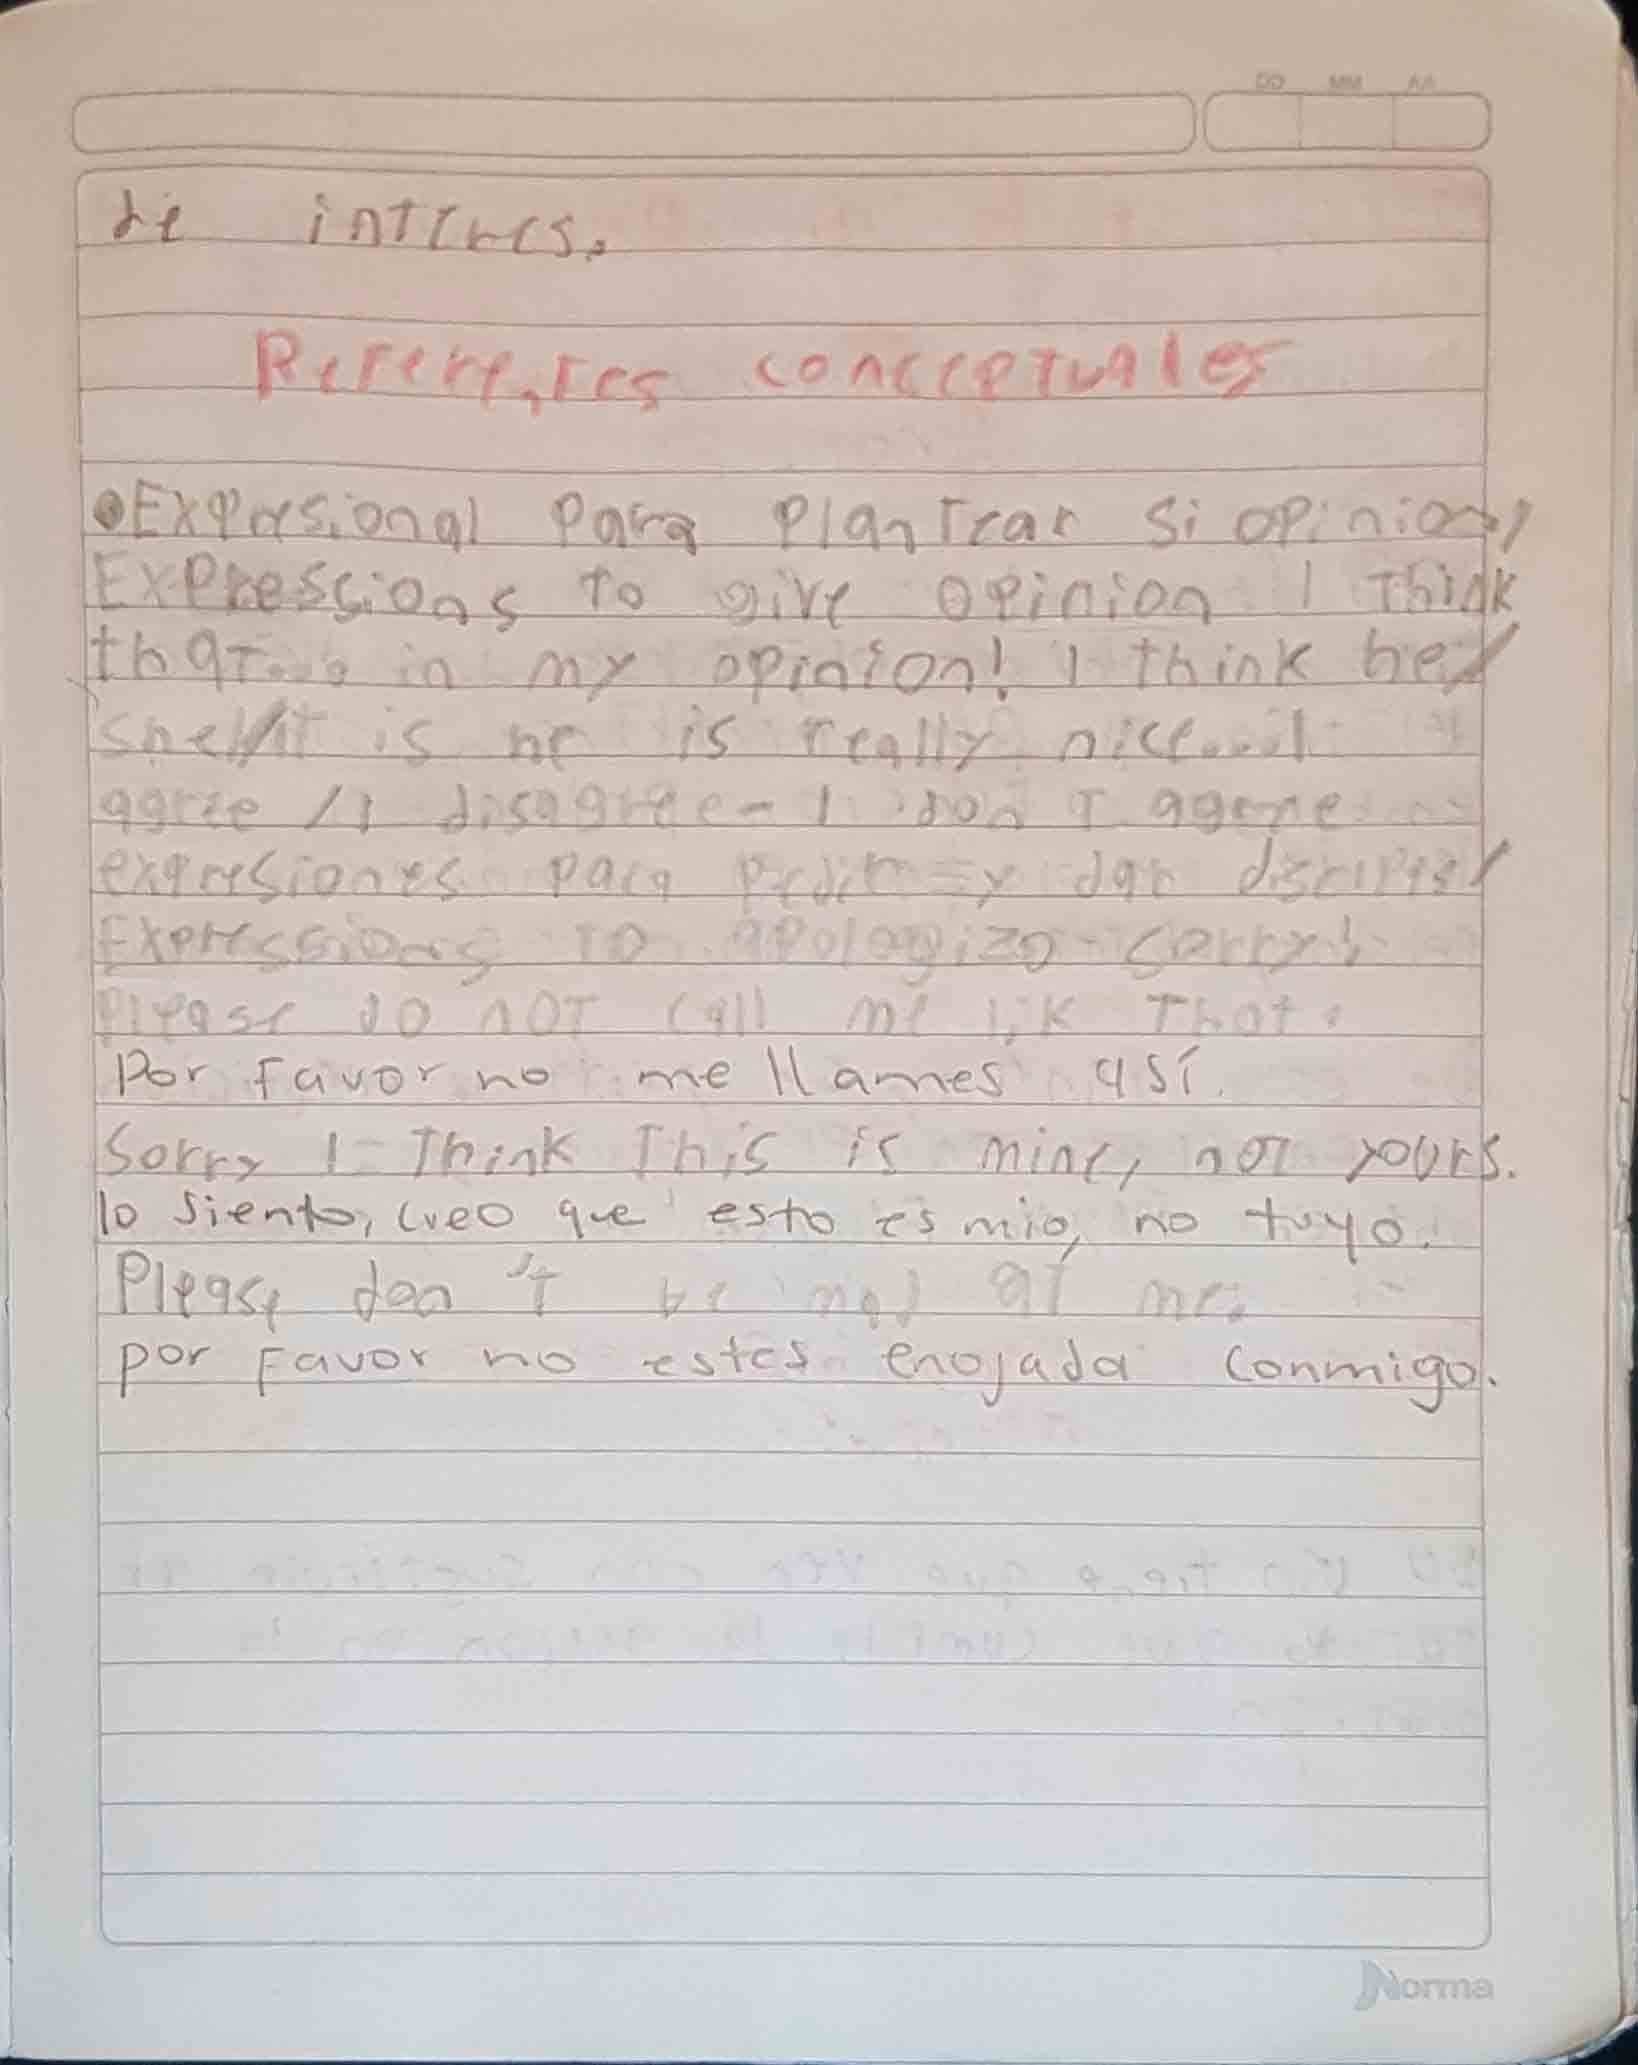 DD MM AA
de interes.
Referentes conceptuales
Expresional para plantear si opinion/
Expressions to give opinion I think
that... in my opinion! I think he/
she/it is he is really nice... I
agree / I disagree - I don t agree
expresiones para pedir = y dar
Expressions to apologizo sorry!
Please do not call me lik that.
Por favor no me llames así.
Sorry I think This is mine, not yours.
lo siento, creo que esto es mio, no tuyo.
Please don't be mad at me.
por favor no estes enojada conmigo.
Norma